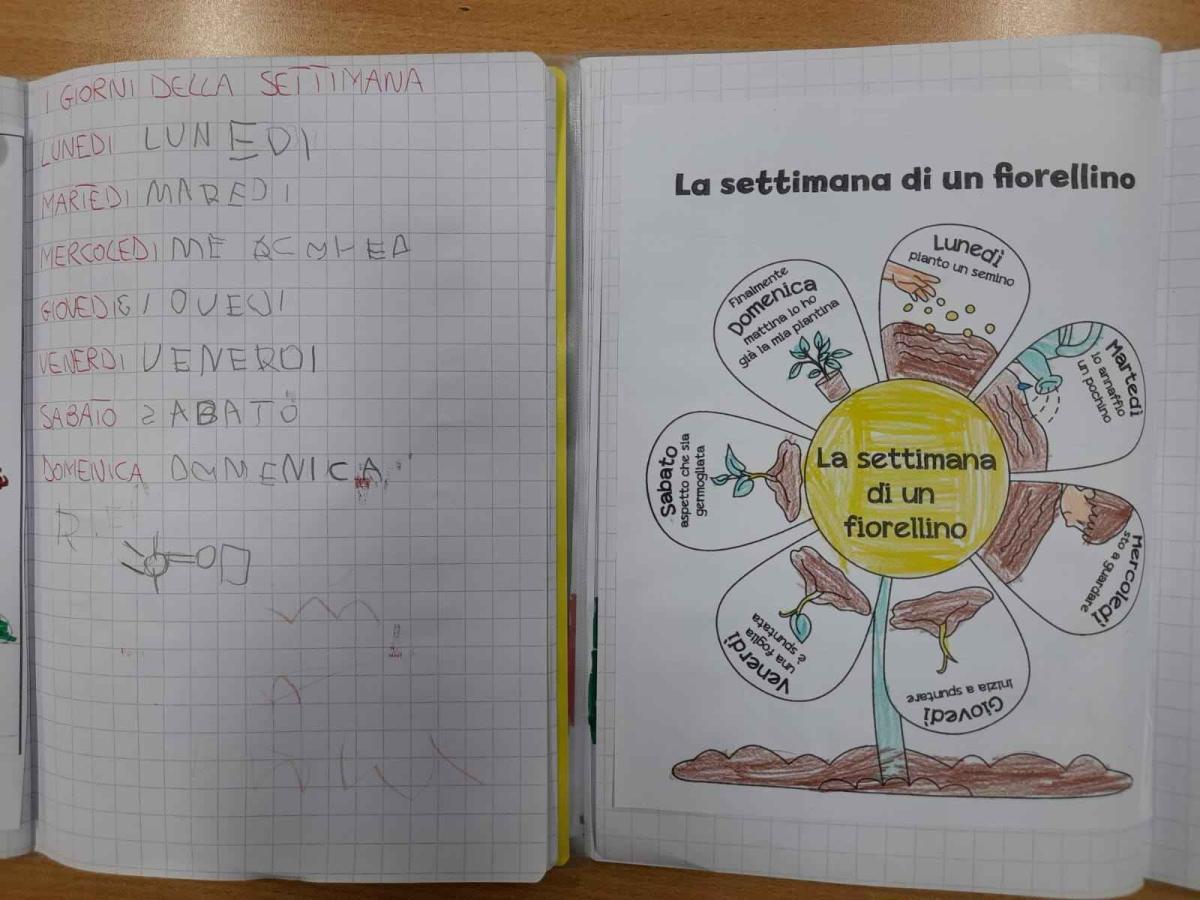 I GIORNI DELLA SETTIMANA
LUNEDI LUNEDI
MARTEDI MAREDI
MERCOLEDI
GIOVEDI GIOVEDI
VENERDI VENERDI
SABATO SABATO
DOMENICA DOMENICA
La settimana di un fiorellino
Lunedì
pianto un semino
Martedì
io annaffio
un pochino
Mercoledì
sto a guardare
Giovedì
inizia a spuntare
Venerdì
una foglia
è spuntata
Sabato
aspetto che sia
germogliata
Finalmente
Domenica
mattina io ho
già la mia piantina
La settimana
di un
fiorellino